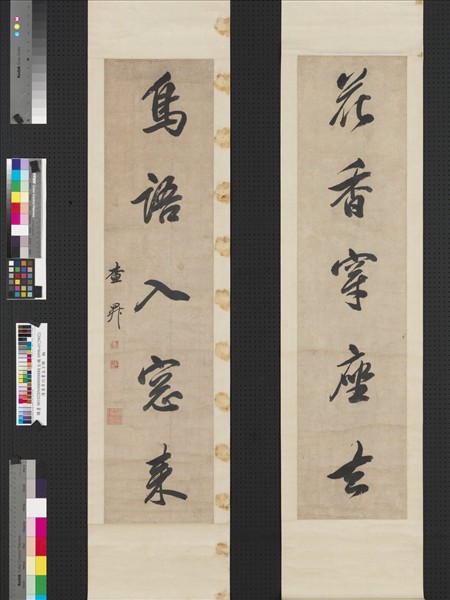 花香穿座去
鳥語入窓来
查昇